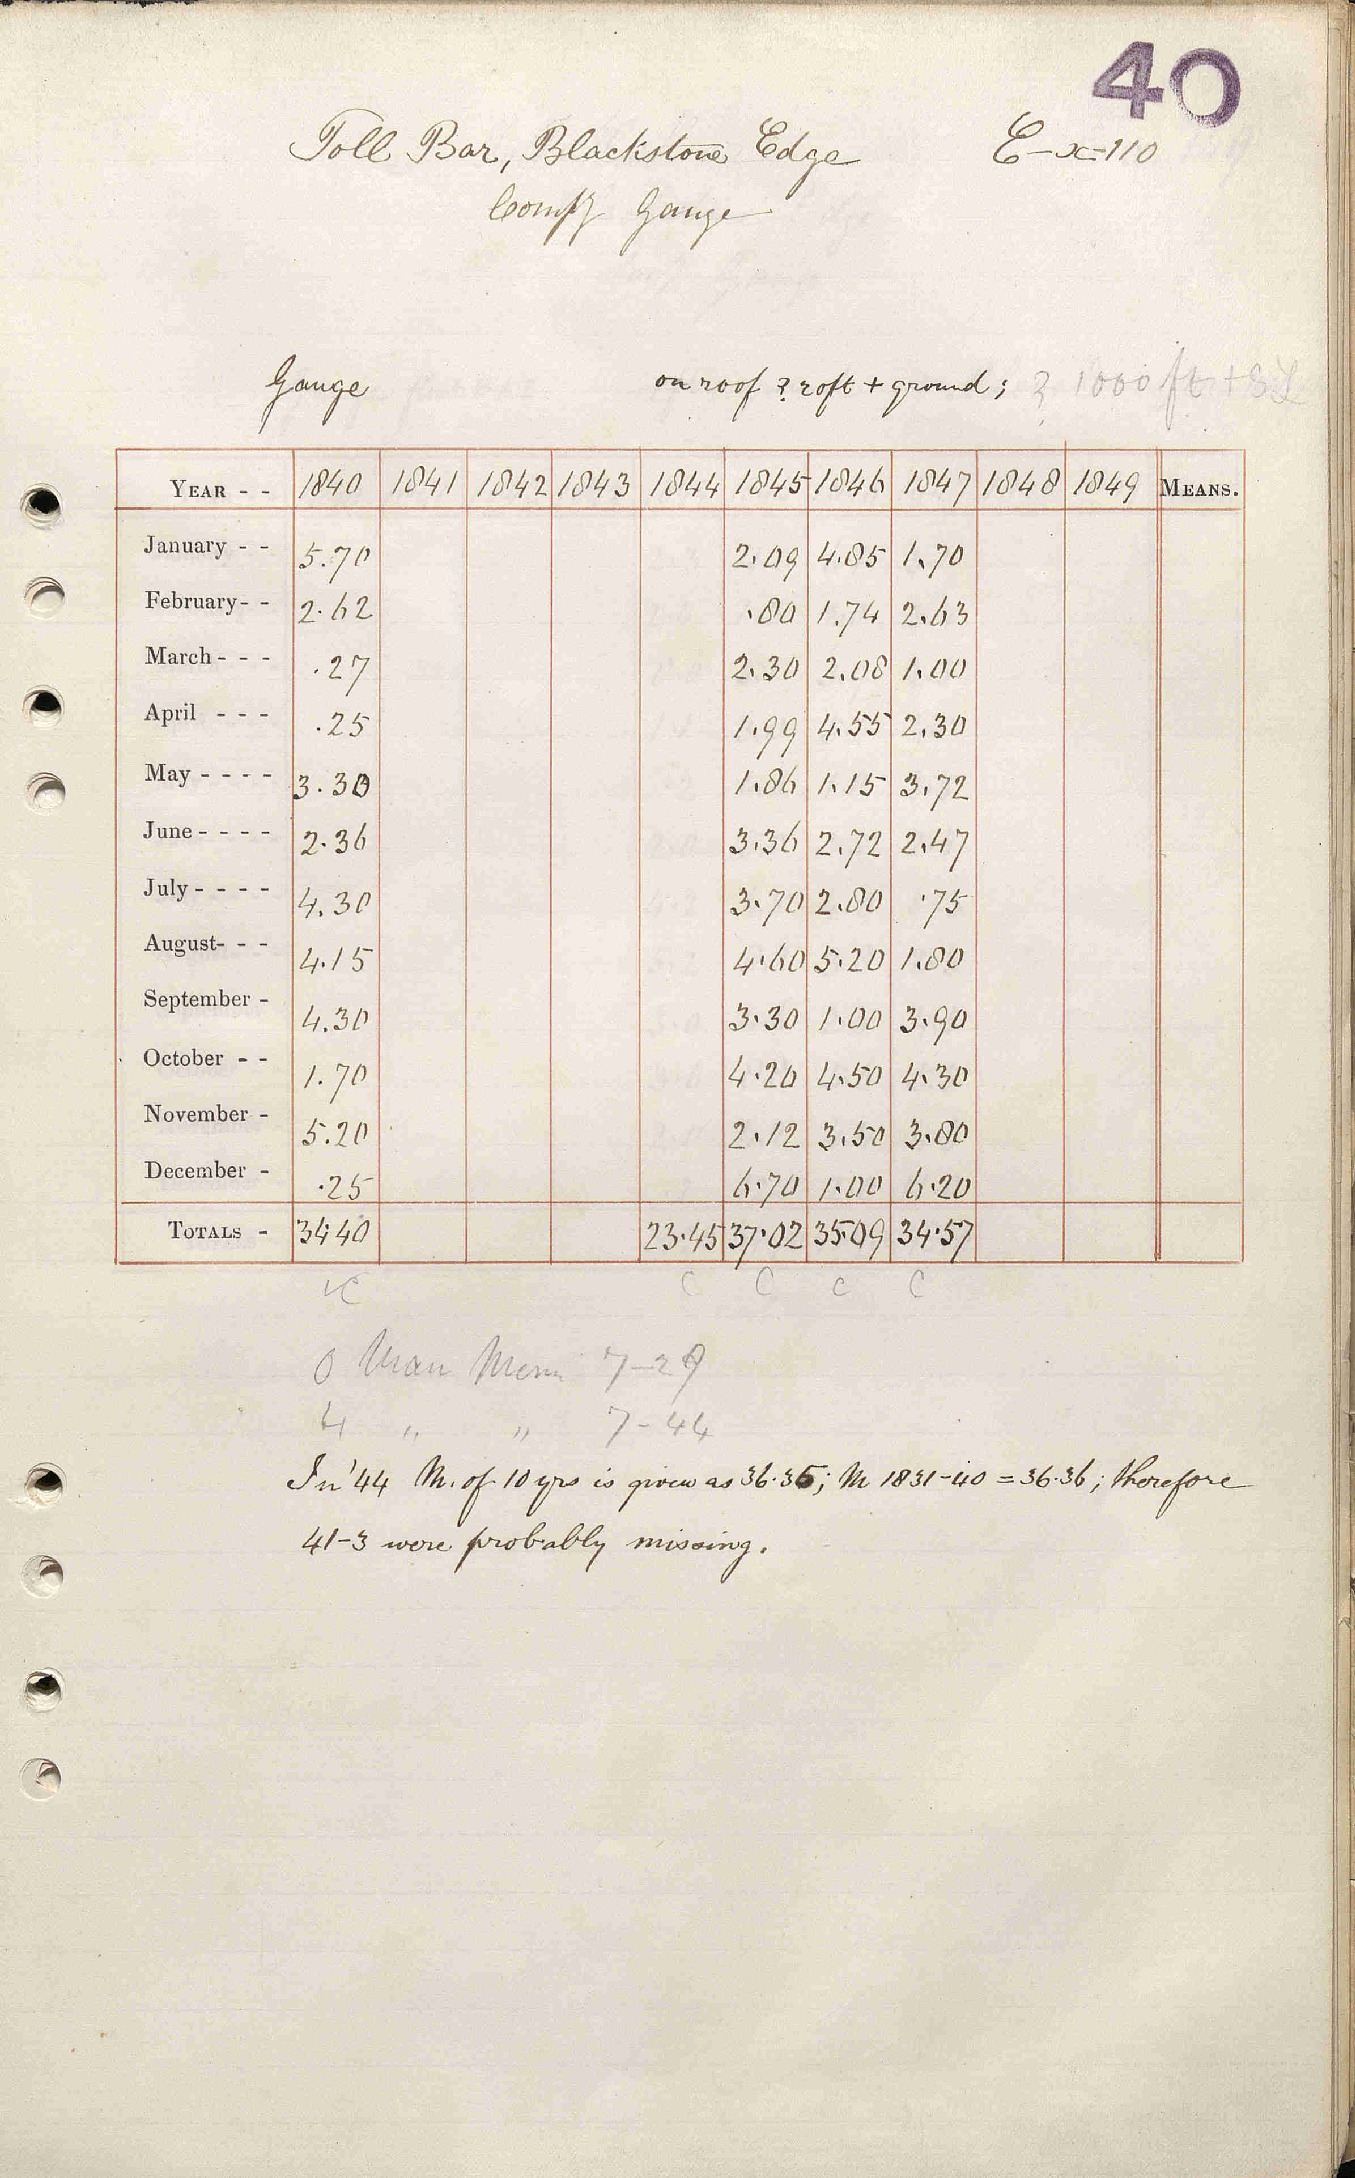 40
Toll Bar, Blackstone Edge E-x-110
Compy Gauge
Gauge on roof ? 20ft + ground; ? 1000 ft + SL
YEAR - - 1840 1841 1842 1843 1844 1845 1846 1847 1848 1849 MEANS.
January - - 5.70 2.09 4.85 1.70
February - - 2.62 .80 1.74 2.63
March - - - .27 2.30 2.08 1.00
April - - - .25 1.99 4.55 2.30
May - - - - 3.30 1.86 1.15 3.72
June - - - - 2.36 3.36 2.72 2.47
July - - - - 4.30 3.70 2.80 .75
August - - - 4.15 4.60 5.20 1.80
September - 4.30 3.30 1.00 3.90
October - - 1.70 4.20 4.50 4.30
November - 5.20 2.12 3.50 3.80
December - .25 6.70 1.00 6.20
TOTALS - 34.40 23.45 37.02 35.09 34.57
C C C C C
0 Man Mem 7-29
4 " " 7-44
In '44 M. of 10 yrs is given as 36.35; M 1831-40 = 36.36; therefore
41-3 were probably missing.